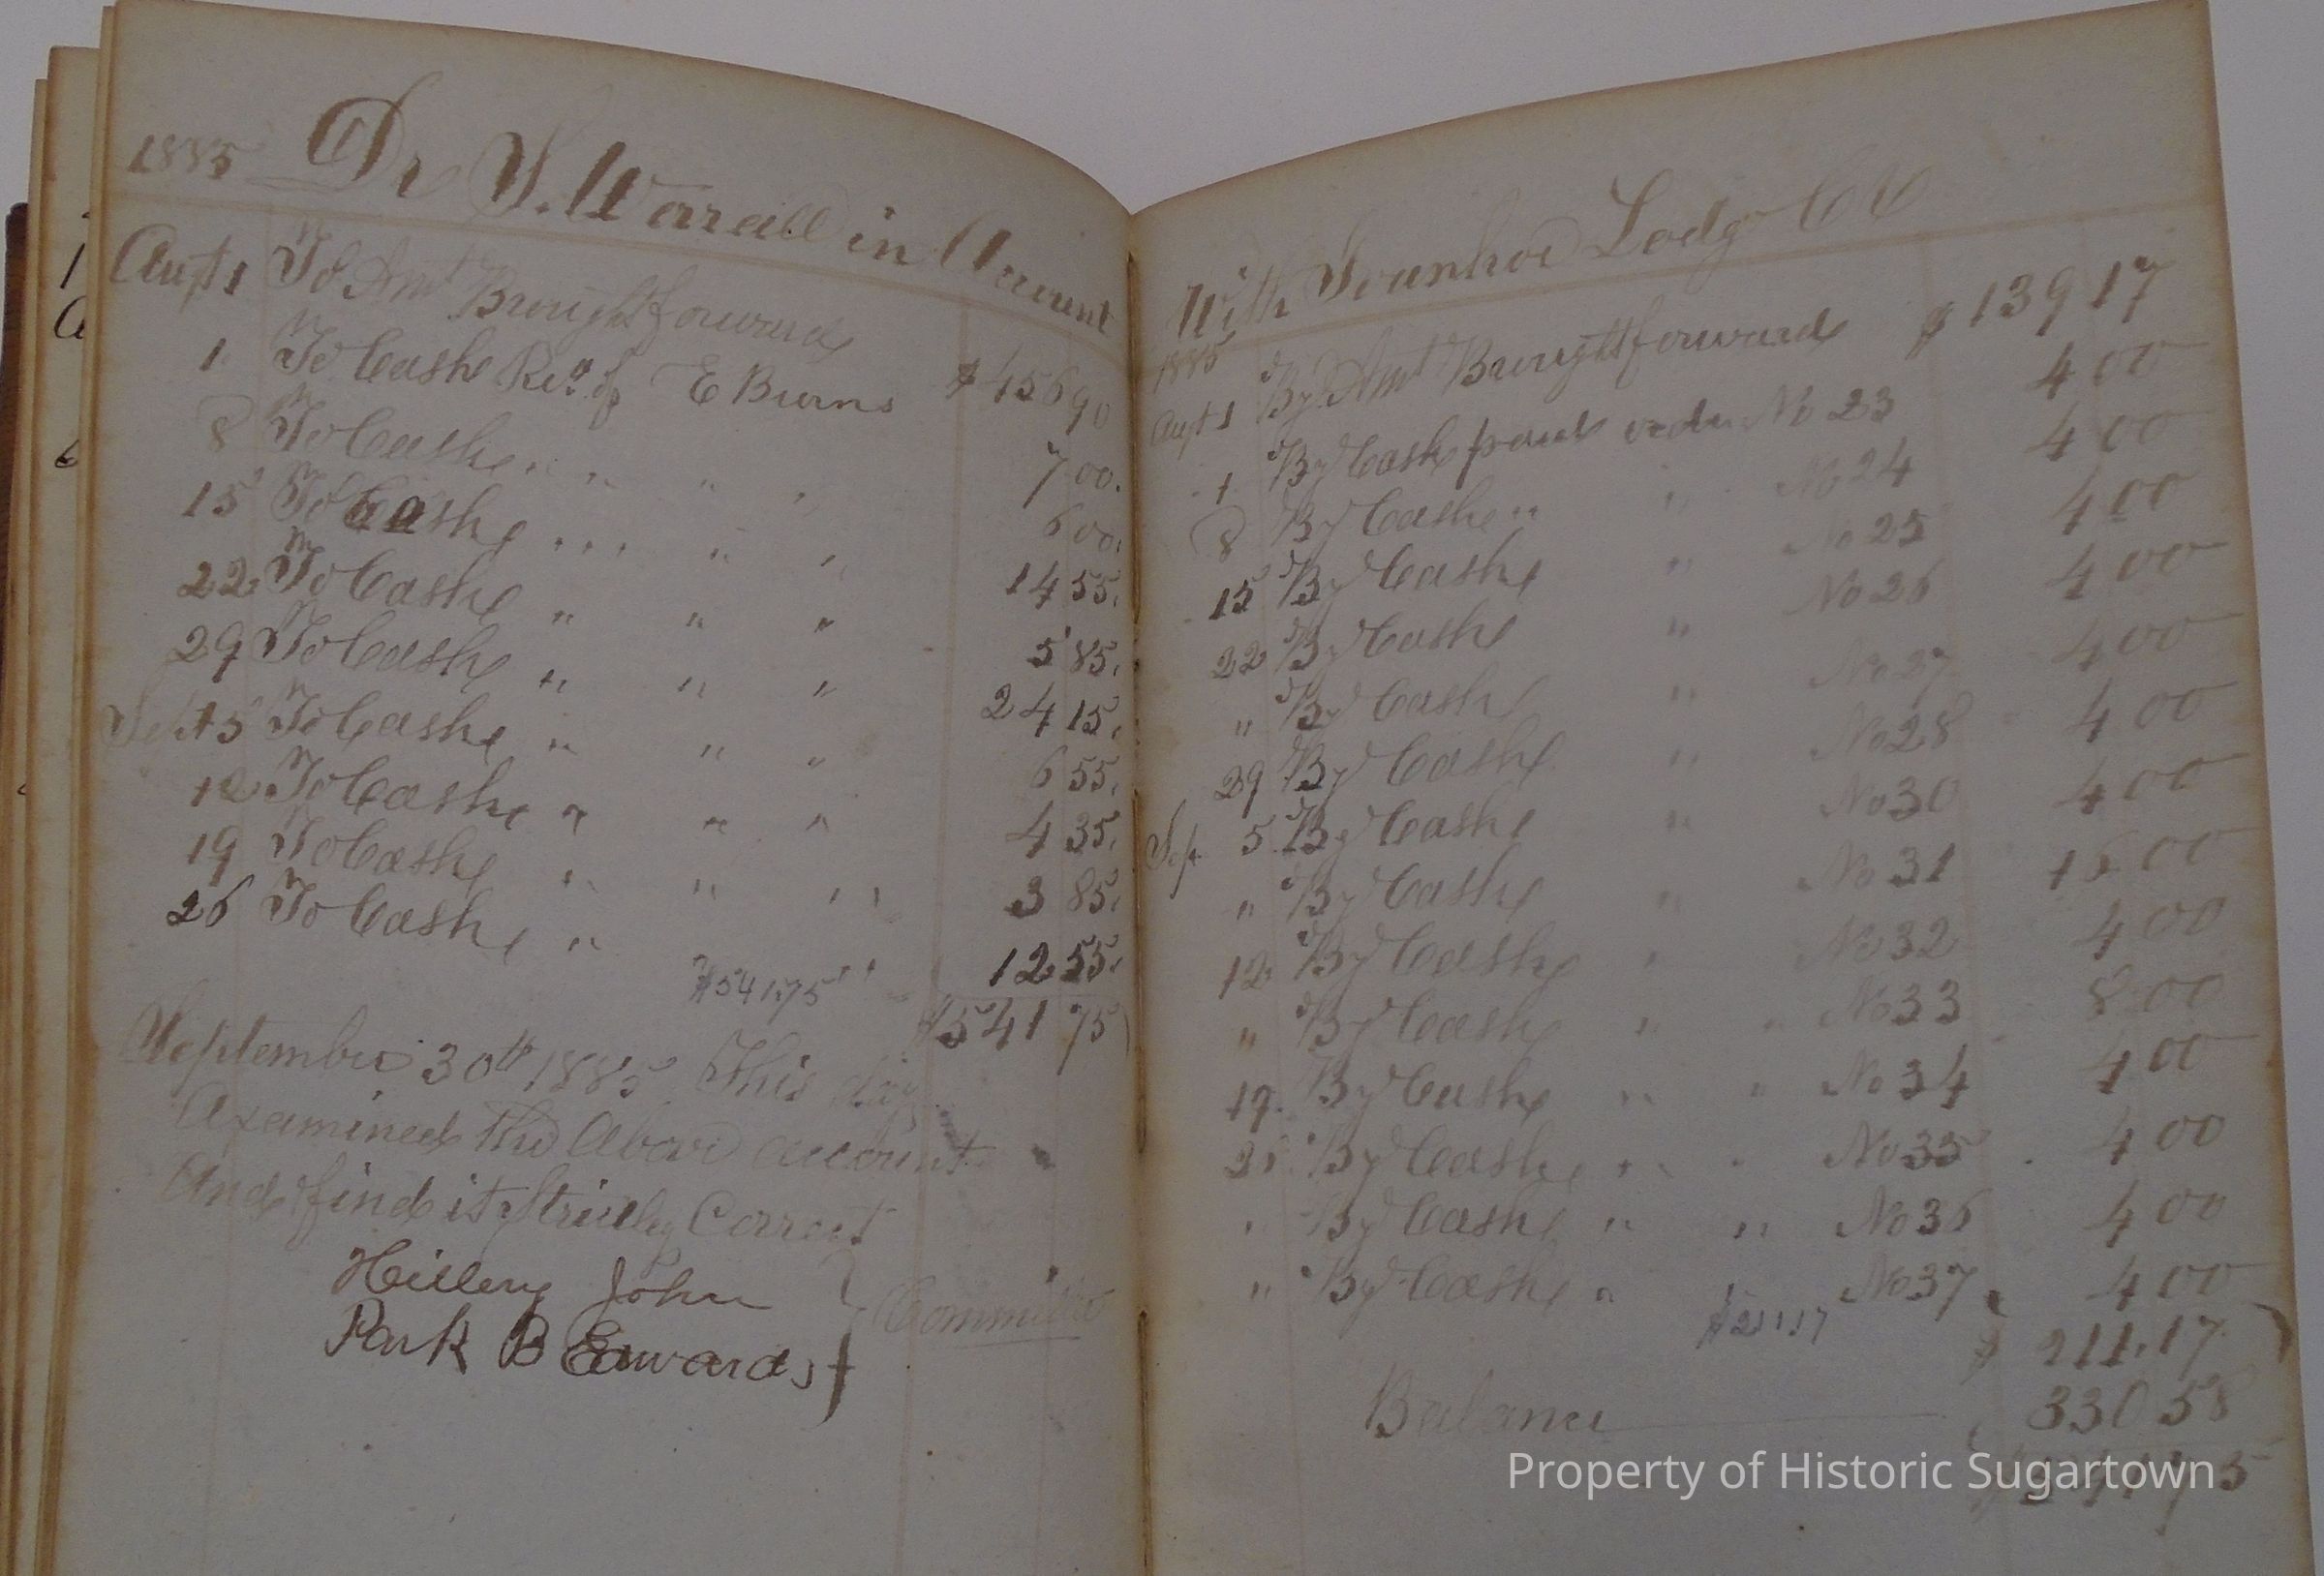 1885 Dr S. Worrall in Account
Augt 1 To Amt Brought forward $456 90
1 To Cash Recd of E Burns 7 00.
8 To Cash " " " " 6 00.
15 To Cash " " " 14 55.
22 To Cash " " " 5 85.
29 To Cash " " " 24 15.
Sept 5 To Cash " " " 6 55.
12 To Cash " " " 4 35.
19 To Cash " " " 3 85.
26 To Cash " 12 55.
$541.75 $541 75
September 30th 1885 This day
Examined the Above account
And find it Strictly Correct
Hillery John
Park B Edwards } Committee
With Ivanhoe Lodge Cr
1885
Augt 1 By Amt Brought forward $139 17
1 By Cash paid order No 23 4 00
8 By Cash " " No 24 4 00
15 By Cash " No 25 4 00
22 By Cash " No 26 4 00
" By Cash " No 27 4 00
29 By Cash " No 28 4 00
Sep 5 By Cash " No 30 4 00
" By Cash " No 31 16 00
12 By Cash " No 32 4 00
" By Cash " " No 33 8 00
19 By Cash " " No 34 4 00
26 By Cash " " No 35 4 00
" By Cash " " No 36 4 00
" By Cash " No 37 4 00
$211.17 $ 211.17
Balance 330 58
Property of Historic Sugartown